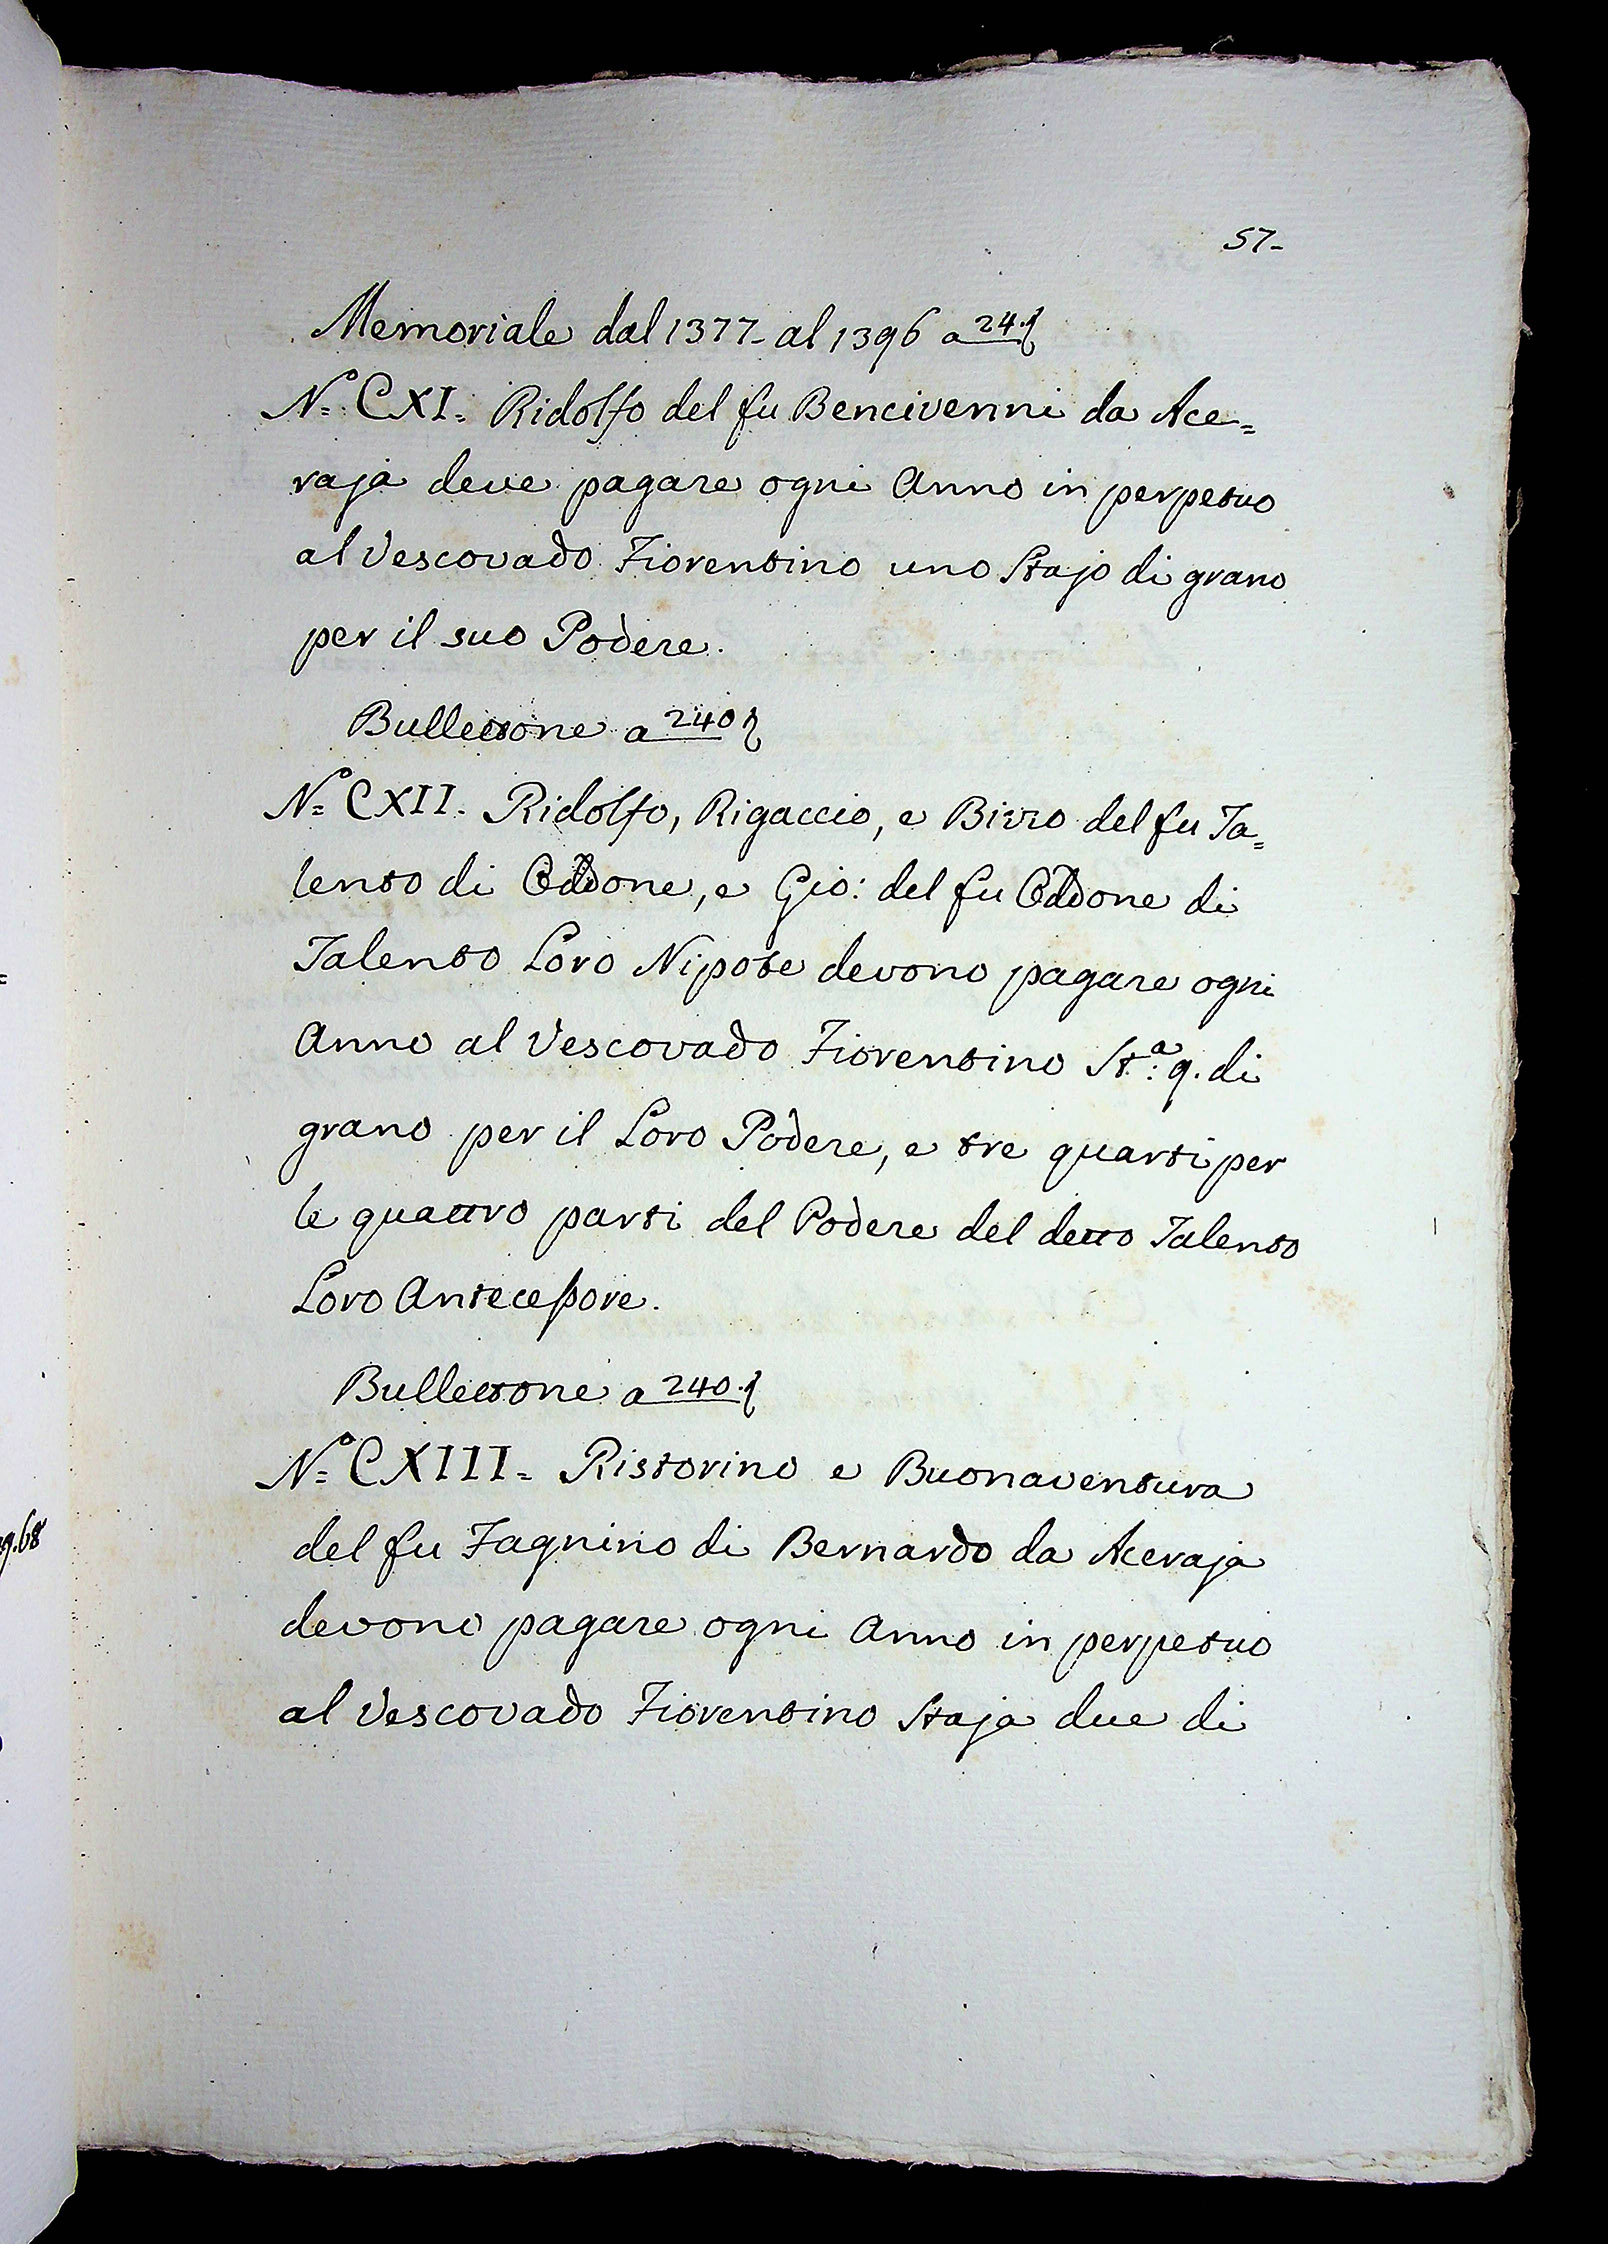 57-
Memoriale dal 1377- al 1396 a 24.
N.º CXI. Ridolfo del fu Bencivenni da Ace=
raja deve pagare ogni Anno in perpetuo
al Vescovado Fiorentino uno Stajo di grano
per il suo Podere.
Bullettone a 240
N.º CXII. Ridolfo, Rigaccio, e Birro del fu Ta=
lento di Oddone, e Gio: del fu Oddone di
Talento Loro Nipote devono pagare ogni
Anno al Vescovado Fiorentino St.ª 9. di
grano per il Loro Podere, e tre quarti per
le quattro parti del Podere del detto Talento
Loro Antecessore.
Bullettone a 240.
N.º CXIII. Ristorino e Buonaventura
del fu Fagnino di Bernardo da Aceraja
devono pagare ogni Anno in perpetuo
al Vescovado Fiorentino Staja due di